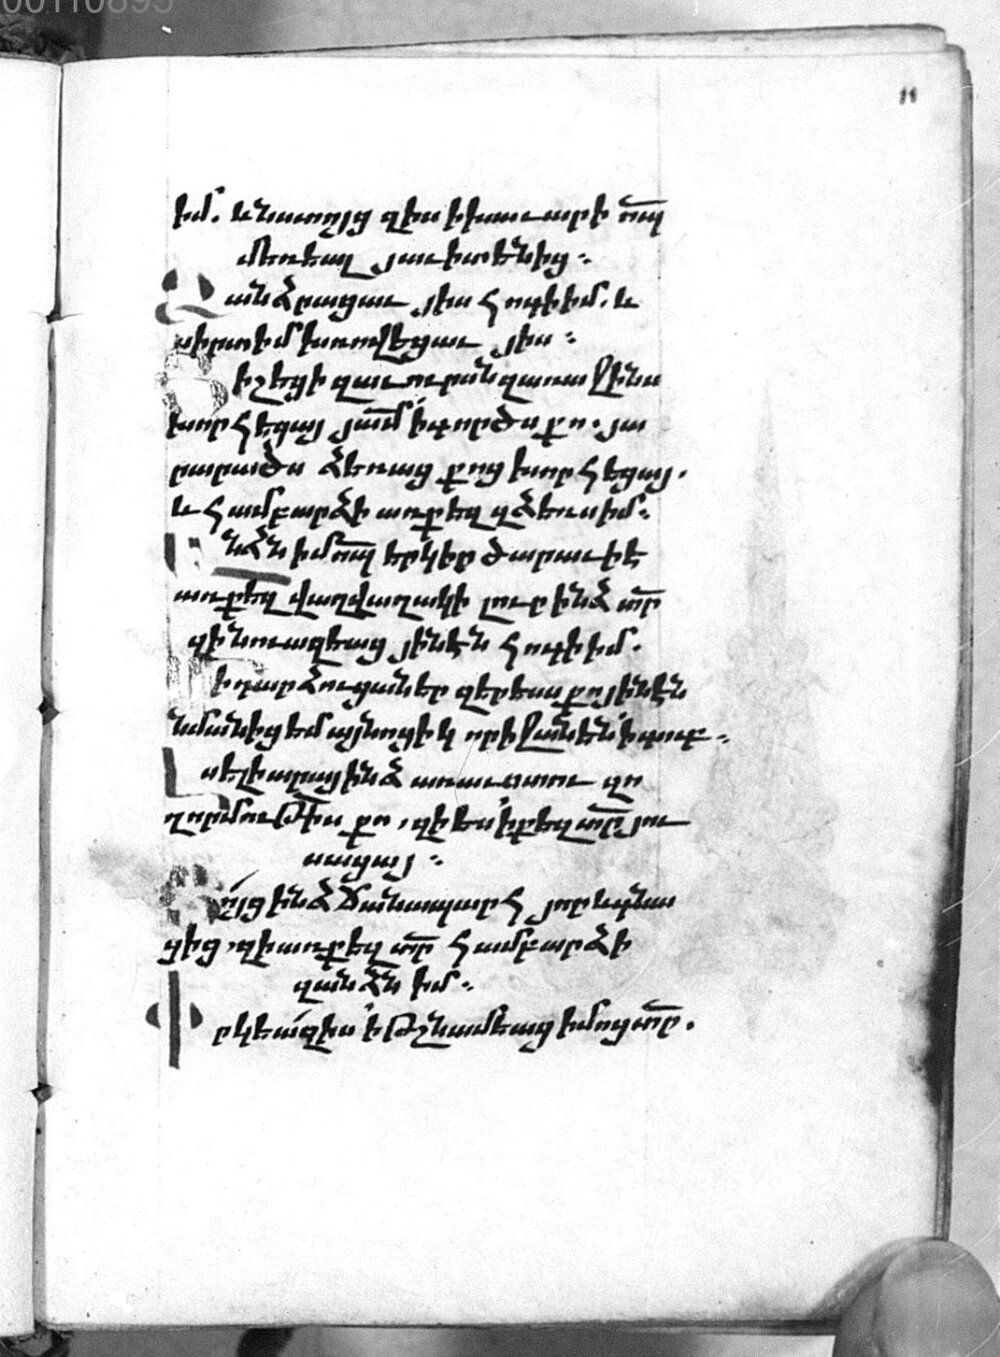 իմ. և նստոյց զիս ի խաւարի որպ
մեռեալ յաւիտենից։
Ձանձրացաւ յիս հոգի իմ. և
սիրտ իմ խռովեցաւ յիս։
Յիշեցի զաւուրսն զառաջինս
խորհեցայ յամ ի գործս քո. յա
րարածս ձեռաց քոց խորհեցայ.
և համբարձի առ քեզ զձեռս իմ։
Անձն իմ որպ երկիր ծարաւի է
առ քեզ վաղվաղակի լուր ինձ տր
զի նուազեաց յինէն հոգի իմ.
Մի դարձուցաներ զերեսս քո յինէն
նմանիցեմ այնոցիկ որ իջանեն ի գուբ։
Լսելի արա ինձ առաւօտու զո
ղորմութիս քո, զի ես ի քեզ տր յու
սացայ։
Ցոյց ինձ ճանապարհ յոր և գնա
ցից, զի առ քեզ տր համբարձի
զանձն իմ։
Փրկեա զիս ի թշնամեաց իմոց տր.
11
00110895